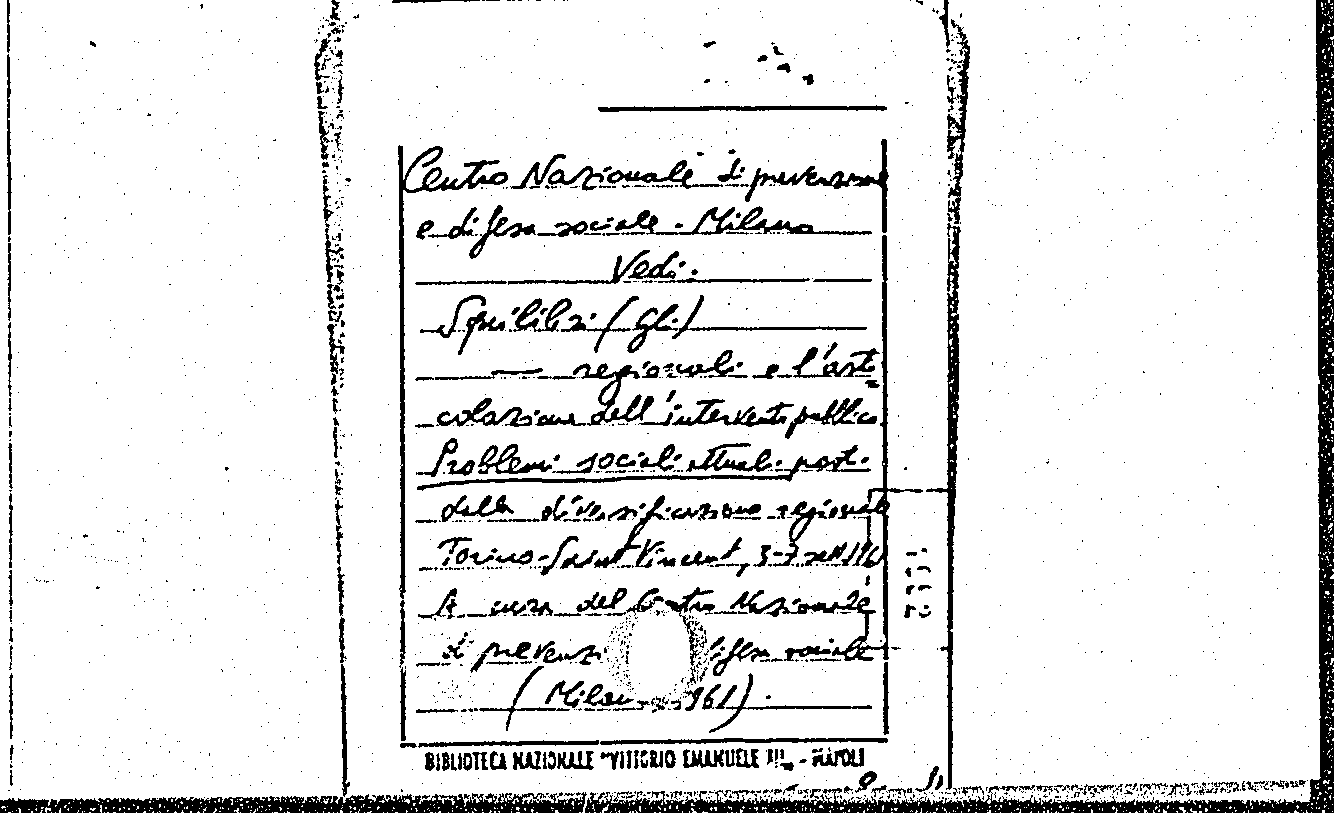 Centro Nazionale di prevenzione
e difesa sociale - Milano
Vedi:
Squilibri (Gli)
— regionali e l'arti=
colazione dell'intervento pubblico
Problemi sociali attuali posti
dalla diversificazione regionale
Torino-Saint Vincent, 3-7 sett.
A cura del Centro Nazionale
di prevenzi difesa sociale
(Milano 1961).
BIBLIOTECA NAZIONALE "VITTORIO EMANUELE III" - NAPOLI